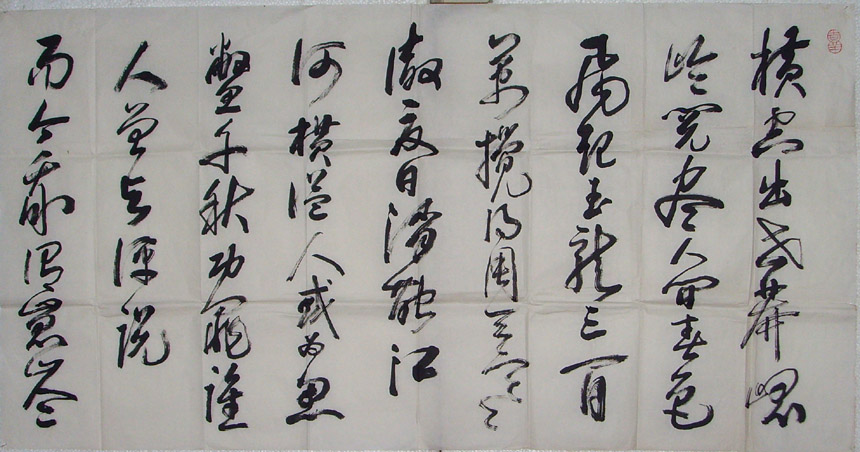 横空出世莽崐
崘阅尽人间春色
飞起玉龙三百
萬搅得周天寒
澈夏日消融江
河横溢人或为鱼
鳖千秋功罪谁
人曾与评说
而今我谓崑崙